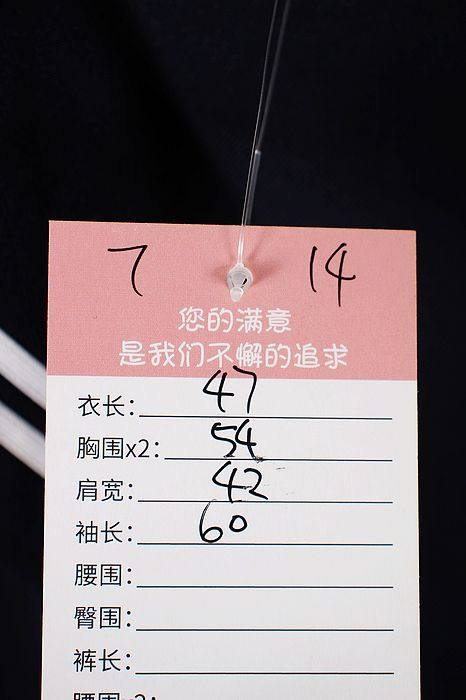 7 14
您的满意
是我们不懈的追求
衣长: 47
胸围x2: 54
肩宽: 42
袖长: 60
腰围:
臀围:
裤长:
腰围x2: